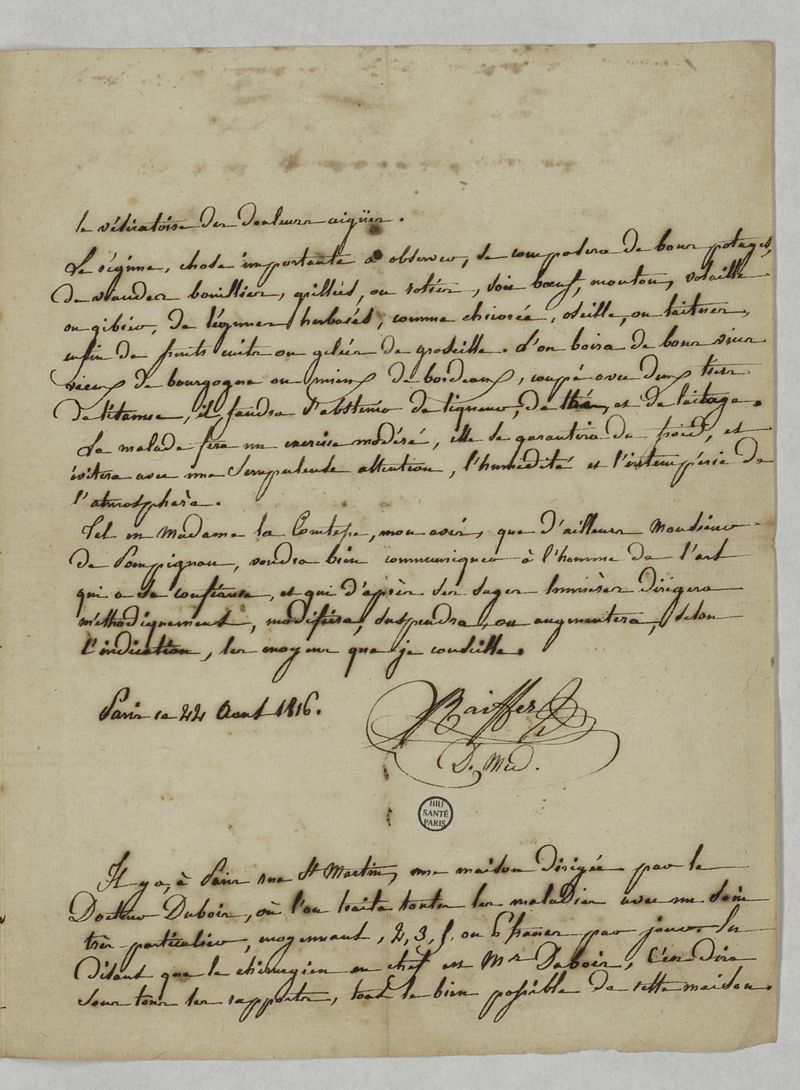 le vésicatoire des douleurs aigües.
Le régime, chose importante à observer, se composera de bons potages,
de viandes bouillies, grillées, ou roties, soit bœuf, mouton, volaille
ou gibier, de légumes herbacés, comme chicorée, oseille, ou laitues,
enfin de fruits cuits ou gelées de groseille. l'on boira de bons vins
vieux de bourgogne ou mieux de bordeaux, coupé avec deux tiers
de il faudra s'abstenir de liqueurs, de thé, et de laitage.
Le malade fera un exercise modéré, elle se garantira du froid, et
évitera avec une scrupuleuse attention, l'humidité et l'intempérie de
l'atmosphère.
Tel est Madame la Comtesse, mon avis, que d'ailleurs Monsieur
de Pompignan, voudra bien communiquer à l'homme de l'art
qui a sa confiance, et qui d'après ses sages lumières dirigera
méthodiquement, modifiera, suspendra, ou augmentera, selon
l'indication, les moyens que je conseille.
Paris ce 22 Aout 1816.
Raiffer
D. Med.
BIU
SANTÉ
PARIS
Il y a, à Paris rue St Martin, une maison dirigée par le
Docteur Dubois, où l'on traite toutes les maladies avec un soin
très particulier, moyennant, 2, 3, 5. ou 6 francs par jour. En
disant que le chirurgien en chef est Mr Dubois, c'est dire
sous tous les rapports, tout le bien possible de cette maison.